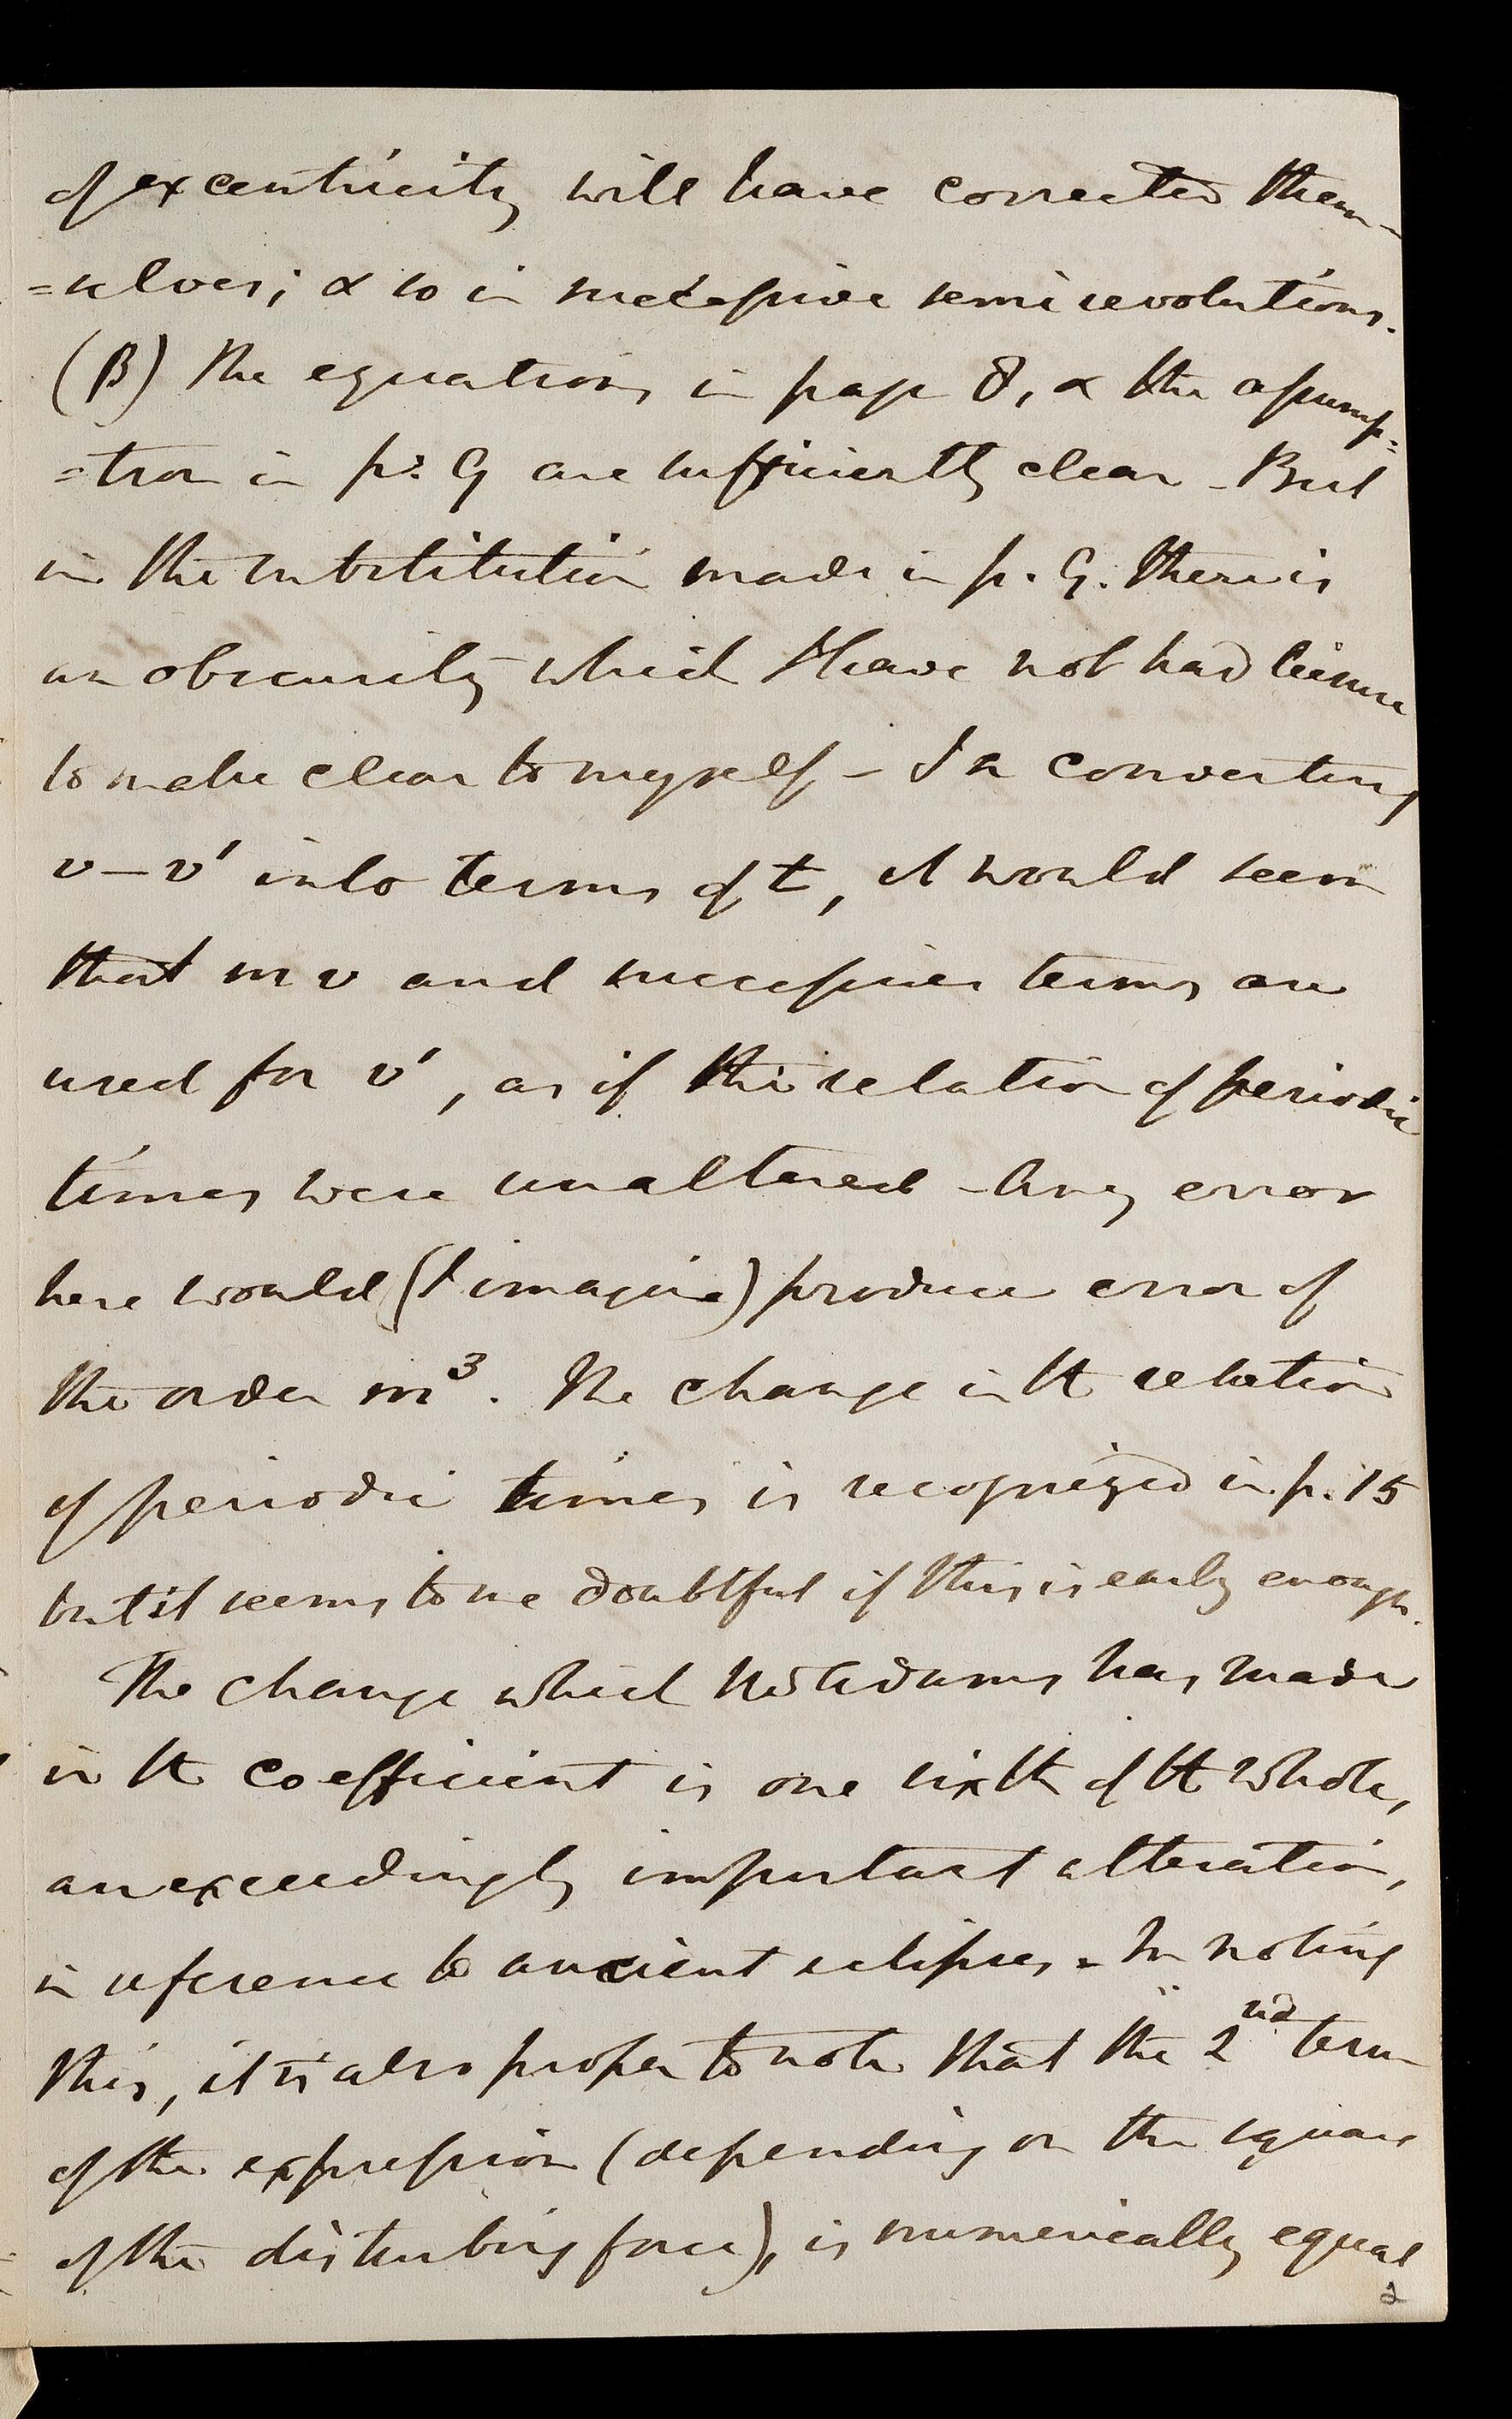 of excentricity will have corrected them-
=selves; & so in successive semirevolutions.
(β) The equations in page 8, & the assump=
=tion in p. 9 are sufficiently clear – But
in the substitution made in p. 9. there is
an obscurity which I have not had leisure
to make clear to myself – In converting
v – v' into terms of t, it would seem
that mv and successive terms are
used for v', as if the relation of periodic
times were unaltered – Any error
here would (I imagine) produce error of
the order m³. The change in the relation
of periodic times is recognized in p. 15
but it seems to me doubtful if this is early enough.
The change which Mr Adams has made
in the coefficient is one sixth of the whole,
an exceedingly important alteration,
in reference to ancient eclipses. In noting
this, it is also proper to note that the 2nd term
of the expression (depending on the square
of the disturbing force), is numerically equal
2